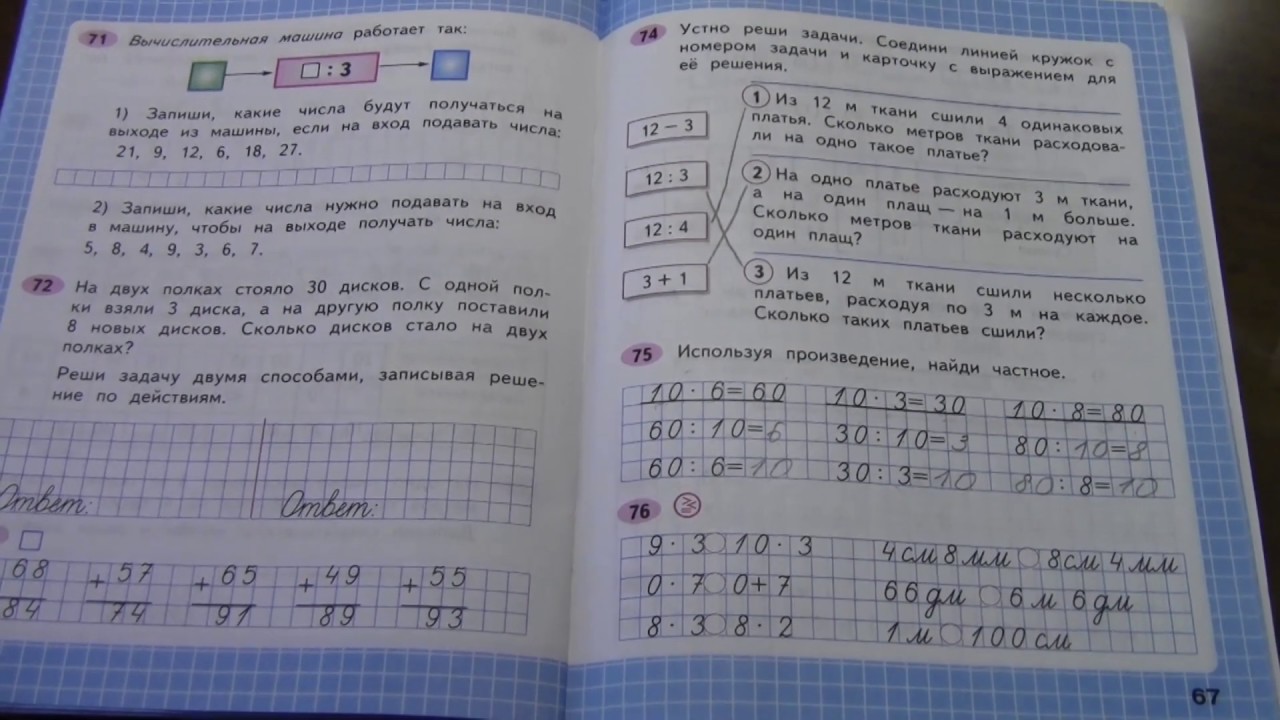 71 Вычислительная машина работает так:
□ : 3
1) Запиши, какие числа будут получаться на
выходе из машины, если на вход подавать числа:
21, 9, 12, 6, 18, 27.
2) Запиши, какие числа нужно подавать на вход
в машину, чтобы на выходе получать числа:
5, 8, 4, 9, 3, 6, 7.
72 На двух полках стояло 30 дисков. С одной пол-
ки взяли 3 диска, а на другую полку поставили
8 новых дисков. Сколько дисков стало на двух
полках?
Реши задачу двумя способами, записывая реше-
ние по действиям.
Ответ: Ответ:
68 + 57 + 65 + 49 + 55
84 74 91 89 93
74 Устно реши задачи. Соедини линией кружок с
номером задачи и карточку с выражением для
её решения.
12 − 3
12 : 3
12 : 4
3 + 1
1 Из 12 м ткани сшили 4 одинаковых
платья. Сколько метров ткани расходова-
ли на одно такое платье?
2 На одно платье расходуют 3 м ткани,
а на один плащ — на 1 м больше.
Сколько метров ткани расходуют на
один плащ?
3 Из 12 м ткани сшили несколько
платьев, расходуя по 3 м на каждое.
Сколько таких платьев сшили?
75 Используя произведение, найди частное.
10 · 6 = 60 10 · 3 = 30 10 · 8 = 80
60 : 10 = 6 30 : 10 = 3 80 : 10 = 8
60 : 6 = 10 30 : 3 = 10 80 : 8 = 10
76
9 · 3 ○ 10 · 3 4 см 8 мм ○ 8 см 4 мм
0 · 7 ○ 0 + 7 66 дм ○ 6 м 6 дм
8 · 3 ○ 8 · 2 1 м ○ 100 см
67